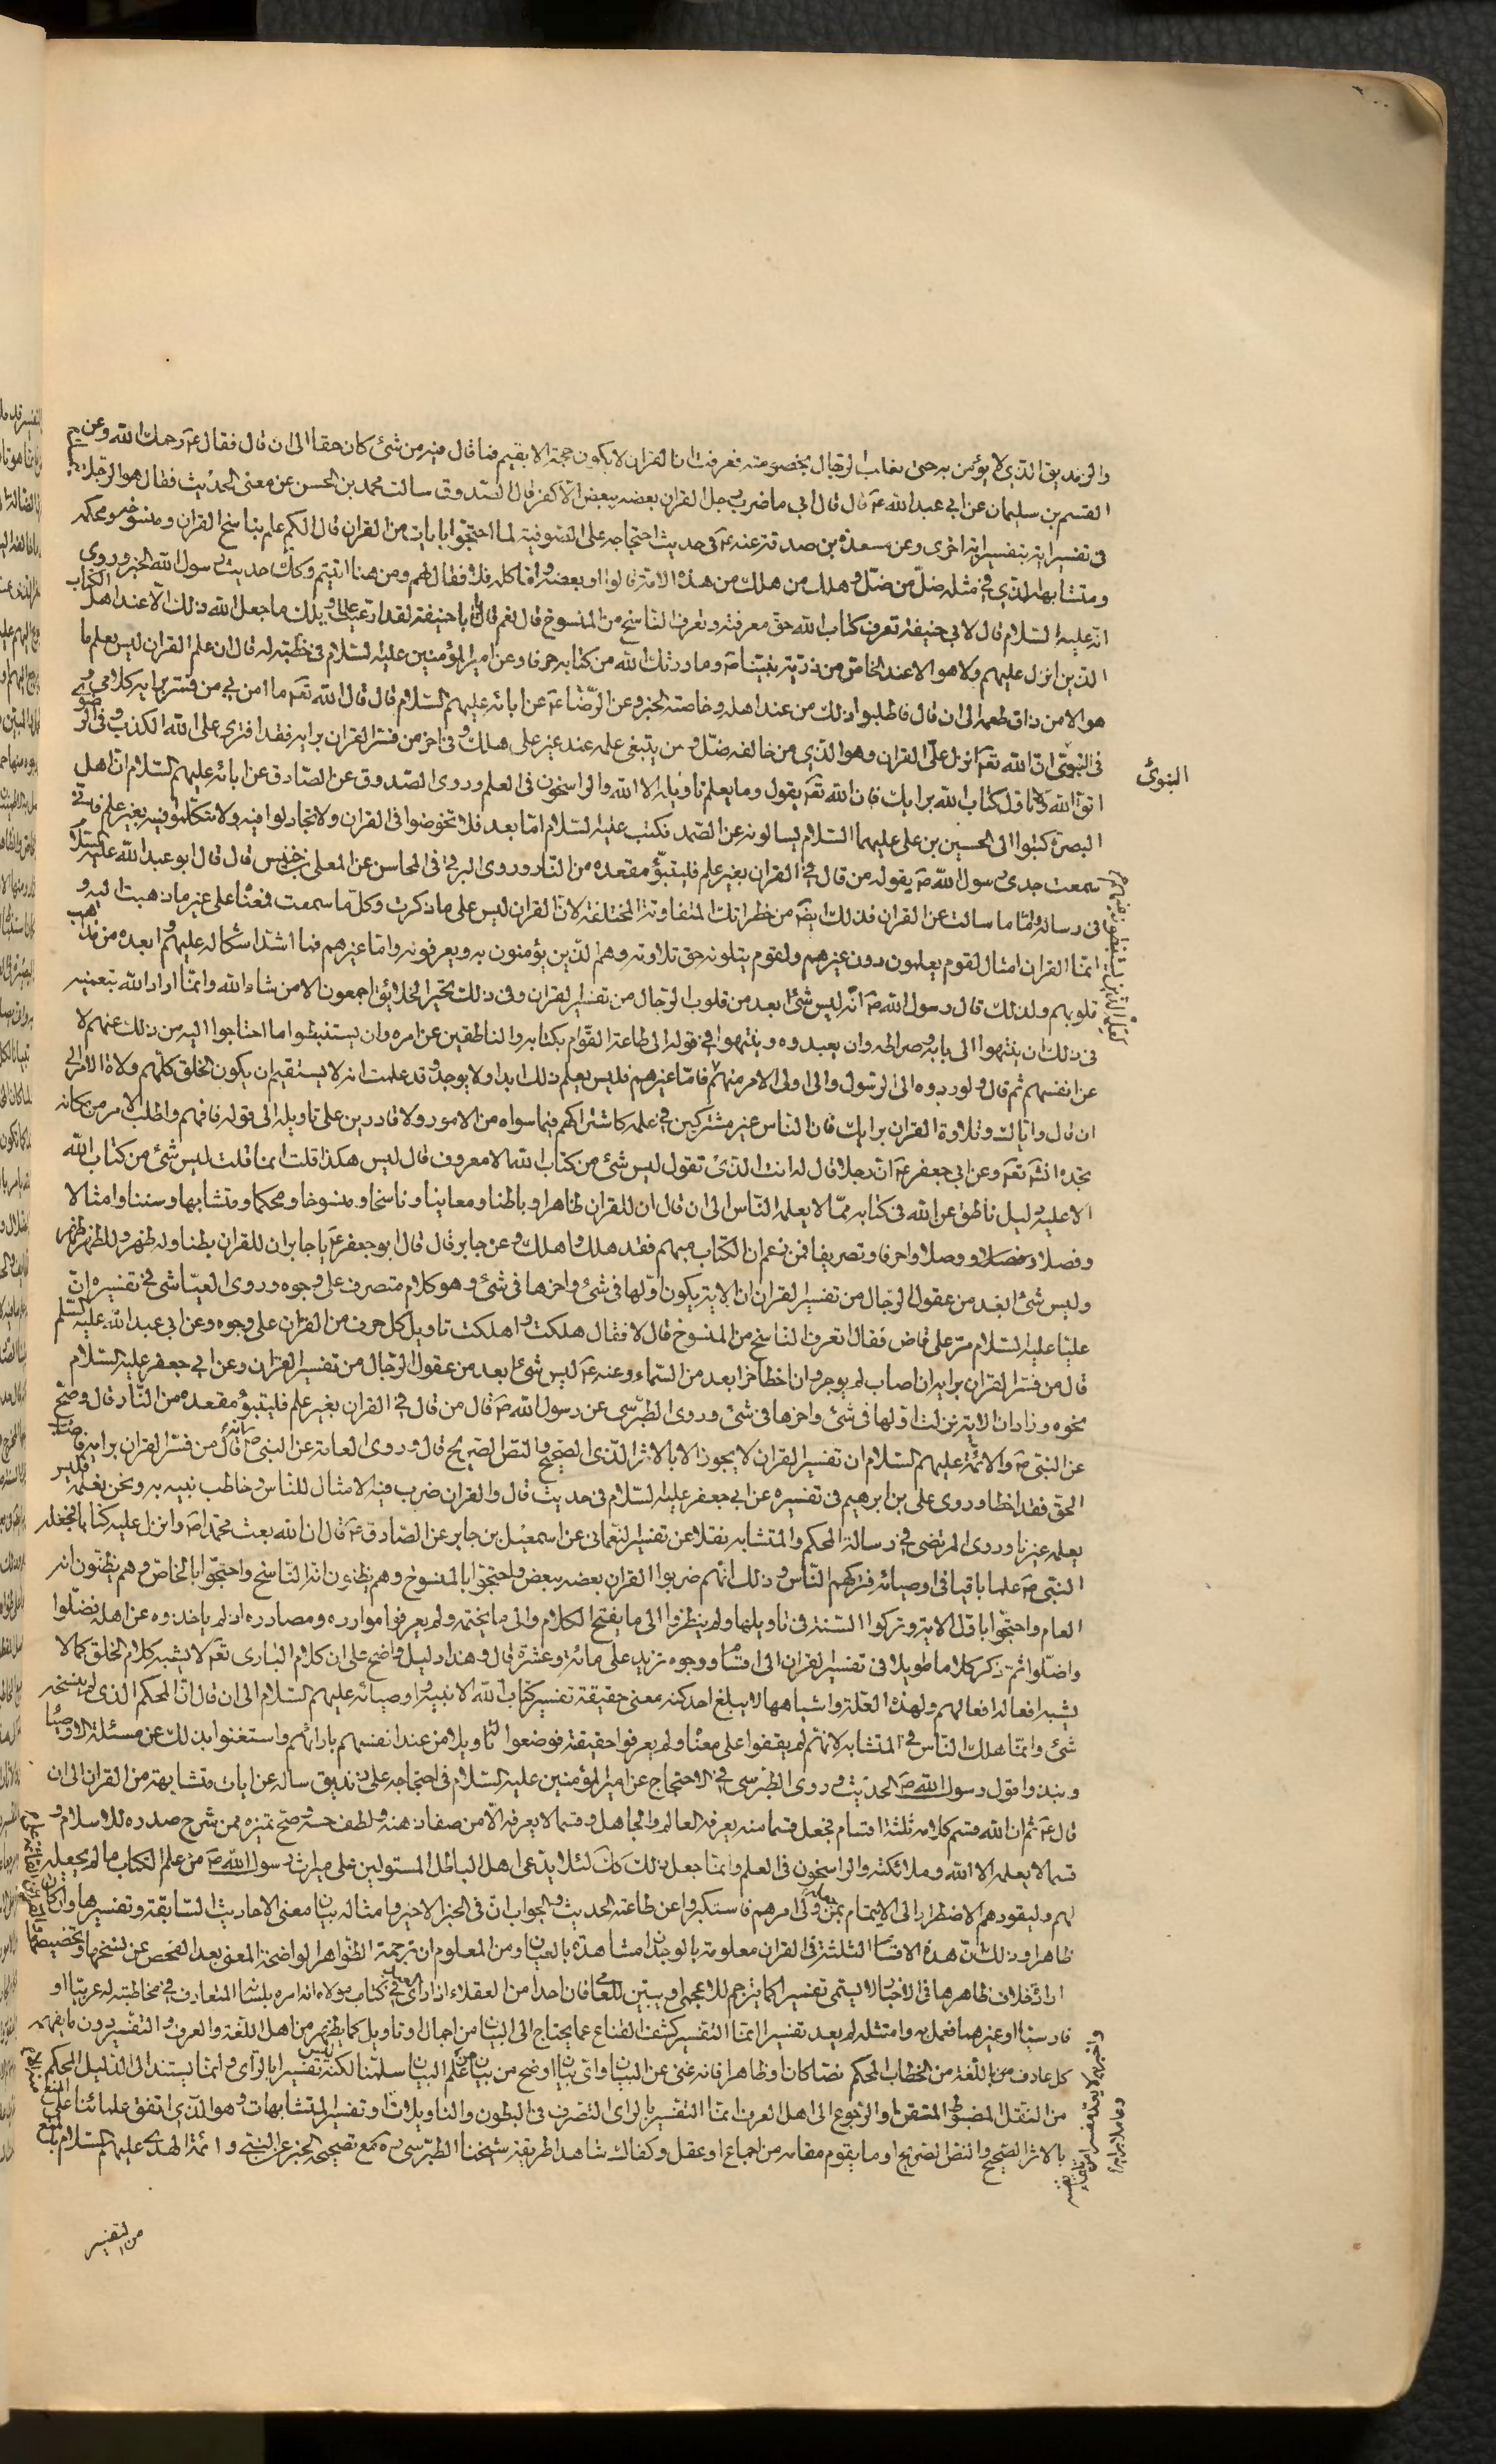 والزنديق الذي لا يؤمن به حتى يغلب الرجال بخصومته فعرفت ان القران لا يكون حجة الا بقيم فما قال فيه من شئ كان حقا الى ان قال فقال ع رحمك الله وعن
القسم بن سليمان عن ابي عبد الله ع قال قال ابي ما ضرب رجل القران بعضه ببعض الا كفر قال الصدوق سالت محمد بن الحسن عن معنى الحديث فقال هو الرجل
فى تفسير اية بتفسير اية اخرى وعن مسعدة بن صدقة عنه ع فى حديث احتجاجه على الصوفية لما احتجوا بايات من القران قال الكم علم بناسخ القران ومنسوخه ومحكمه
ومتشابهه الذي في مثله ضل من ضل وهلك من هلك من هذه الامة قالوا او بعضه واما كله فلا فقال لهم ومن هنا اتيتم وكك حديث رسول الله الخبر وروي
انه عليه السلام قال لابي حنيفة تعرف كتاب الله حق معرفته وتعرف الناسخ من المنسوخ قال نعم قال يا با حنيفة لقد ادعيت علما ويلك ما جعل الله ذلك الا عند اهل الكتاب
الذين انزل عليهم ولا هو الا عند الخاص من ذرية نبينا ص وما ورثك الله من كتابه حرفا وعن امير المؤمنين عليه السلام فى خطبة له قال ان علم القران ليس يعلم ما
هو الا من ذاق طعمه الى ان قال فاطلبوا ذلك من عند اهله وخاصته الخبر وعن الرضا ع عن ابائه عليهم السلام قال قال الله تعه ما امن بي من فسر برايه كلامي
فى النبوي ان الله تعه انزل علي القران وهو الذي من خالفه ضل ومن يبتغي علمه عند غير علي هلك وفى اخر من فسر القران برايه فقد افترى على الله الكذب وفى اخر
النبوي
اتق الله ولا تاول كتاب الله برايك فان الله تعه يقول وما يعلم تاويله الا الله والراسخون فى العلم وروى الصدوق عن الصادق عن ابائه عليهم السلام ان اهل
البصرة كتبوا الى الحسين بن علي عليهما السلام يسالونه عن الصمد فكتب عليه السلام اما بعد فلا تخوضوا فى القران ولا تجادلوا فيه ولا تتكلموا فيه بغير علم فانى
سمعت جدي رسول الله ص يقول من قال في القران بغير علم فليتبوء مقعده من النار وروى البرقي فى المحاسن عن المعلى بن خنيس قال قال ابو عبد الله عليه السلام
فى رسالة واما ما سالت عن القران فذلك ايضه من خطراتك المتفاوتة المختلفة لان القران ليس على ما ذكرت وكل ما سمعت فمعناه على غير ما ذهبت اليه و
انما القران امثال لقوم يعلمون دون غيرهم ولقوم يتلونه حق تلاوته وهم الذين يؤمنون به ويعرفونه واما غيرهم فما اشد اشكاله عليهم وابعده من مذاهب
قلوبهم ولذلك قال رسول الله ص انه ليس شئ ابعد من قلوب الرجال من تفسير القران وفى ذلك تحير الخلائق اجمعون الا من شاء الله وانما اراد الله بتعميه
فى ذلك ان ينتهوا الى بابه وصراطه وان يعبدوه وينتهوا في قوله الى طاعة القوام بكتابه والناطقين عن امره وان يستنبطوا ما احتاجوا اليه من ذلك عنهم لا
عن انفسهم ثم قال ولو ردوه الى الرسول والى اولى الامر منهم فاما غيرهم فليس يعلم ذلك ابدا ولا يوجد وقد علمت انه لا يستقيم ان يكون الخلق كلهم ولاة الامر الى
ان قال واياك وتلاوة القران برايك فان الناس غير مشتركين فى علمه كاشتراكهم فيما سواه من الامور ولا قادرين على تاويله الى قوله فافهم واطلب الامر من مكانه
تجده انشه تعه وعن ابي جعفر ع ان رجلا قال له انت الذي تقول ليس شئ من كتاب الله الا معروف قال ليس هكذا قلت انما قلت ليس شئ من كتاب الله
الا عليه دليل ناطق عن الله فى كتابه مما لا يعلمه الناس الى ان قال ان للقران ظاهرا وباطنا ومعاينا وناسخا ومنسوخا ومحكما ومتشابها وسننا وامثالا
وفصلا ووصلا واحرفا وتصريفا فمن زعم ان الكتاب مبهم فقد هلك واهلك وعن جابر قال قال ابو جعفر ع يا جابر ان للقران بطنا وله ظهر وللظهر ظهر
وليس شئ ابعد من عقول الرجال من تفسير القران ان الاية يكون اولها فى شئ واخرها فى شئ وهو كلام متصرف على وجوه وروى العياشي في تفسيره ان
عليا عليه السلام مر على قاض فقال اتعرف الناسخ من المنسوخ قال لا فقال هلكت واهلكت تاويل كل حرف من القران على وجوه وعن ابي عبد الله عليه السلم
قال من فسر القران برايه ان اصاب لم يوجر وان اخطا خر ابعد من السماء وعنه ع ليس شئ ابعد من عقول الرجال من تفسير القران وعن ابي جعفر عليه السلام
نحوه وزاد ان الاية نزلت اولها فى شئ واخرها فى شئ وروى الطبرسى عن رسول الله ص قال من قال في القران بغير علم فليتبؤ مقعده من النار قال وصح
عن النبى ص والائمة عليهم السلام ان تفسير القران لا يجوز الا بالاثر الصحيح والنص الصريح قال وروى العامة عن النبى ص انه قال من فسر القران برايه فاصاب
الحق فقد اخطا وروى علي بن ابرهيم فى تفسيره عن ابى جعفر عليه السلام فى حديث قال والقران ضرب فيه الامثال للناس وخاطب نبيه به ونحن نعلمه فليس
يعلمه غيرنا وروى المرتضى في رسالة المحكم والمتشابه نقلا عن تفسير النعمانى عن اسمعيل بن جابر عن الصادق ع قال ان الله بعث محمدا ص وانزل عليه كتابا فجعله
النبى ص علما باقيا فى اوصيائه فتركهم الناس وذلك انهم ضربوا القران بعضه ببعض واحتجوا بالمنسوخ وهم يظنون انه الناسخ واحتجوا بالخاص وهم يظنون انه
العام واحتجوا باول الاية وتركوا السنة فى تاويلها ولم ينظروا الى ما يفتح الكلام والى ما يختمه ولم يعرفوا موارده ومصادره اذ لم ياخذوه عن اهله فضلوا
واضلوا ثم ذكر كلاما طويلا فى تفسير القران الى اقسام ووجوه تزيد على مائة وعشرة قال وهذا دليل واضح على ان كلام البارى تعه لا يشبه كلام الخلق كما لا
يشبه افعاله افعالهم ولهذه العلة واشباهها لا يبلغ احد كنه معنى حقيقة تفسير كتاب الله الا نبيه واوصيائه عليهم السلام الى ان قال ان المحكم الذى لم ينسخه
شئ وانما هلك الناس في المتشابه لانهم لم يقفوا على معناه ولم يعرفوا حقيقته فوضعوا له تاويلا من عند انفسهم بارائهم واستغنوا بذلك عن مسئلة الاوصياء
ونبذوا قول رسول الله ص الحديث وروى الطبرسى في الاحتجاج عن امير المؤمنين عليه السلام فى احتجاجه على زنديق ساله عن ايات متشابهة من القران الى ان
قال ع ثم ان الله قسم كلامه ثلثة اقسام فجعل قسما منه يعرفه العالم والجاهل وقسما لا يعرفه الا من صفا ذهنه ولطف حسه وصح تميزه ممن شرح صدره للاسلام و
قسما لا يعلمه الا الله وملائكته والراسخون فى العلم وانما جعل ذلك كذلك لئلا يدعى اهل الباطل المستولين على ميراث رسول الله ص من علم الكتاب ما لم يجعله
لهم وليقودهم الاضطرار الى الايتمام بمن ولى امرهم فاستكبروا عن طاعته الحديث والجواب ان فى الخبر الاخير وامثاله بيان معنى الاحاديث السابقة وتفسيرها وان كان
ظاهرا وذلك ان هذه الاقسام الثلثة فى القران معلومة بالوجدان مشاهدة بالعيان ومن المعلوم ان ترجمة الظواهر الواضحة المعنى بعد الفحص عن نسخها وتخصيصها
ارادة خلاف ظاهرها فى الاخبار لا يسمى تفسيرا كما يترجم للاعجمى او يبين للعامى فان احدا من العقلاء اذا راى في كتاب مولاه انه امره بلسانه المتعارف في مخاطبته له عربيا او
فارسيا او غيرهما فعمل به وامتثله لم يعد تفسيرا انما التفسير كشف القناع عما يحتاج الى البيان من اجمال او تاويل كما يظهر من اهل اللغة والعرف والتفسير دون ما يفهمه
كل عارف باللغة من الخطاب المحكم نصا كان او ظاهرا فانه غنى عن البيان واى بيان اوضح من بيان من علم البيان سلمنا لكنه ليس تفسيرا بالراى وانما يستند الى الدليل المحكم
من النقل المضبوط المتقن والرجوع الى اهل العرف انما التفسير بالراى التصرف فى البطون والتاويلات او تفسير المتشابهات وهو الذي اتفق علمائنا على
بالاثر الصحيح والنص الصريح او ما يقوم مقامه من اجماع او عقل وكفاك شاهدا طريقة شيخنا الطبرسى ره مع تصحيحه الخبر عن النبي وائمة الهدى عليهم السلام
من التفسير